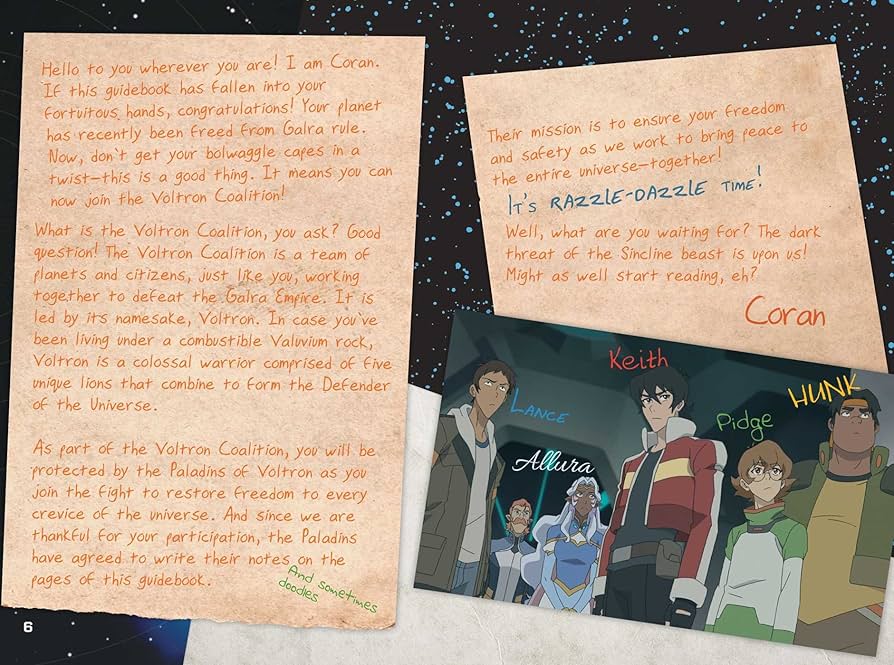 Hello to you wherever you are! I am Coran.
If this guidebook has fallen into your
fortuitous hands, congratulations! Your planet
has recently been freed from Galra rule.
Now, don't get your bolwaggle capes in a
twist—this is a good thing. It means you can
now join the Voltron Coalition!
What is the Voltron Coalition, you ask? Good
question! The Voltron Coalition is a team of
planets and citizens, just like you, working
together to defeat the Galra Empire. It is
led by its namesake, Voltron. In case you've
been living under a combustible Valuvium rock,
Voltron is a colossal warrior comprised of five
unique lions that combine to form the Defender
of the Universe.
As part of the Voltron Coalition, you will be
protected by the Paladins of Voltron as you
join the fight to restore freedom to every
crevice of the universe. And since we are
thankful for your participation, the Paladins
have agreed to write their notes on the
pages of this guidebook.
And sometimes
doodles
6
Their mission is to ensure your freedom
and safety as we work to bring peace to
the entire universe—together!
IT'S RAZZLE-DAZZLE TIME!
Well, what are you waiting for? The dark
threat of the Sincline beast is upon us!
Might as well start reading, eh?
Coran
LANCE
Allura
Keith
Pidge
HUNK